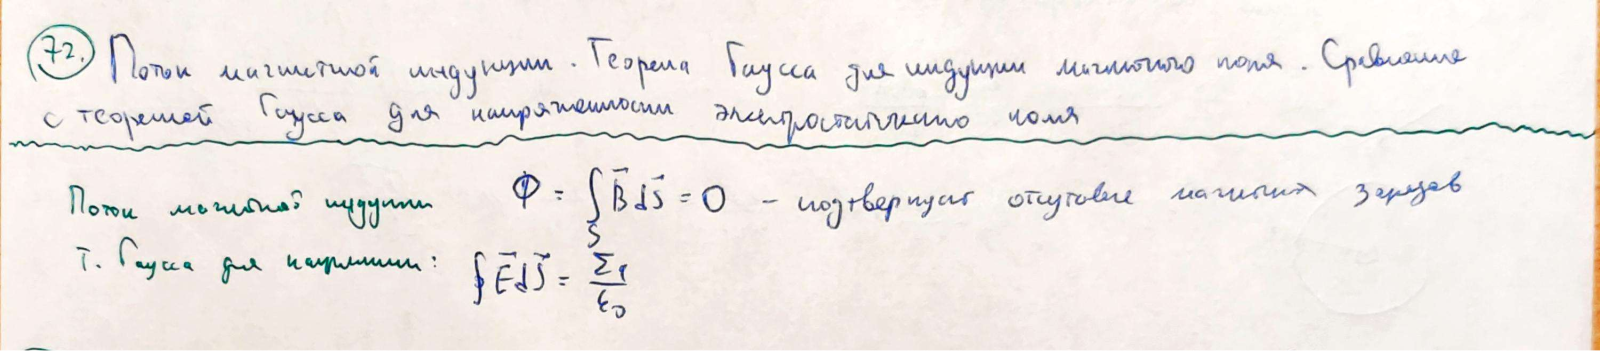 72. Поток магнитной индукции. Теорема Гаусса для индукции магнитного поля. Сравнение
с теоремой Гаусса для напряженности электростатического поля
Поток магнитной индукции Φ = ∫_S B⃗ dS⃗ = 0 - подтверждает отсутствие магнитных зарядов
Т. Гаусса для напряжённости: ∮ E⃗ dS⃗ = Σq/ε₀